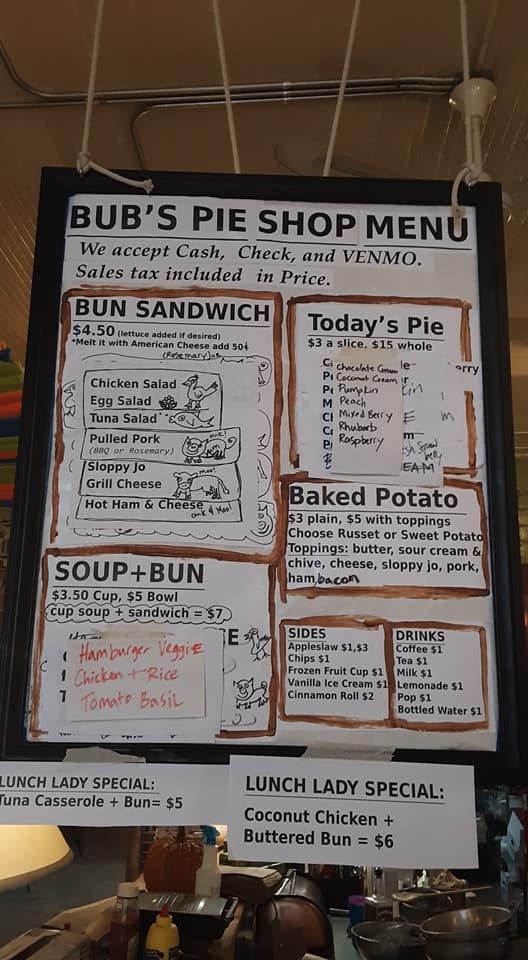 BUB'S PIE SHOP MENU
We accept Cash, Check, and VENMO.
Sales tax included in Price.
BUN SANDWICH
$4.50 (lettuce added if desired)
*Melt it with American Cheese add 50¢
Chicken Salad
Egg Salad
Tuna Salad
Pulled Pork
(BBQ or Rosemary)
Sloppy Jo
Grill Cheese
Moo!
Hot Ham & Cheese
oink & Moo!
SOUP+BUN
$3.50 Cup, $5 Bowl
cup soup + sandwich = $7
Hamburger Veggie
Chicken + Rice
Tomato Basil
Today's Pie
$3 a slice, $15 whole
Chocolate Cream
Coconut Cream
Pumpkin
Peach
Mixed Berry
Rhubarb
Raspberry
Baked Potato
$3 plain, $5 with toppings
Choose Russet or Sweet Potato
Toppings: butter, sour cream &
chive, cheese, sloppy jo, pork,
ham, bacon
SIDES
Appleslaw $1,$3
Chips $1
Frozen Fruit Cup $1
Vanilla Ice Cream $1
Cinnamon Roll $2
DRINKS
Coffee $1
Tea $1
Milk $1
Lemonade $1
Pop $1
Bottled Water $1
LUNCH LADY SPECIAL:
Tuna Casserole + Bun= $5
LUNCH LADY SPECIAL:
Coconut Chicken +
Buttered Bun = $6